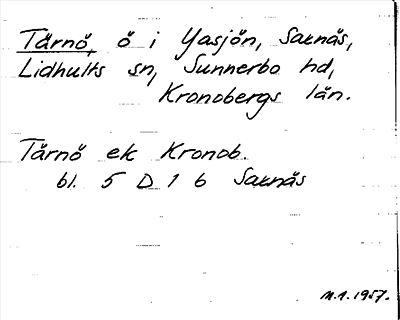 Tärnö, ö i Yasjön, Saxnäs,
Lidhults sn, Sunnerbo hd,
Kronobergs län.
Tärnö ek Kronob.
bl. 5 D 1 b Saxnäs
M.A. 1957.